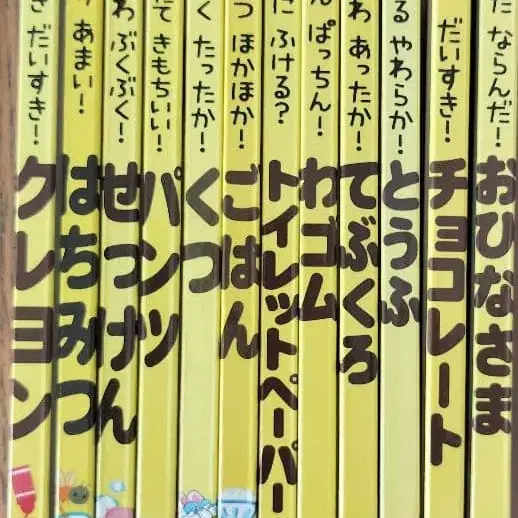 だ ならんだ！ おひなさま
だいすき！ チョコレート
る やわらか！ とうふ
わ あったか！ てぶくろ
ん ぱっちん！ わゴム
に ふける？ トイレットペーパー
つ ほかほか！ ごはん
く たったか！ くつ
て きもちいい！ パンツ
わ ぶくぶく！ せっけん
あまい！ はちみつ
き だいすき！ クレヨン